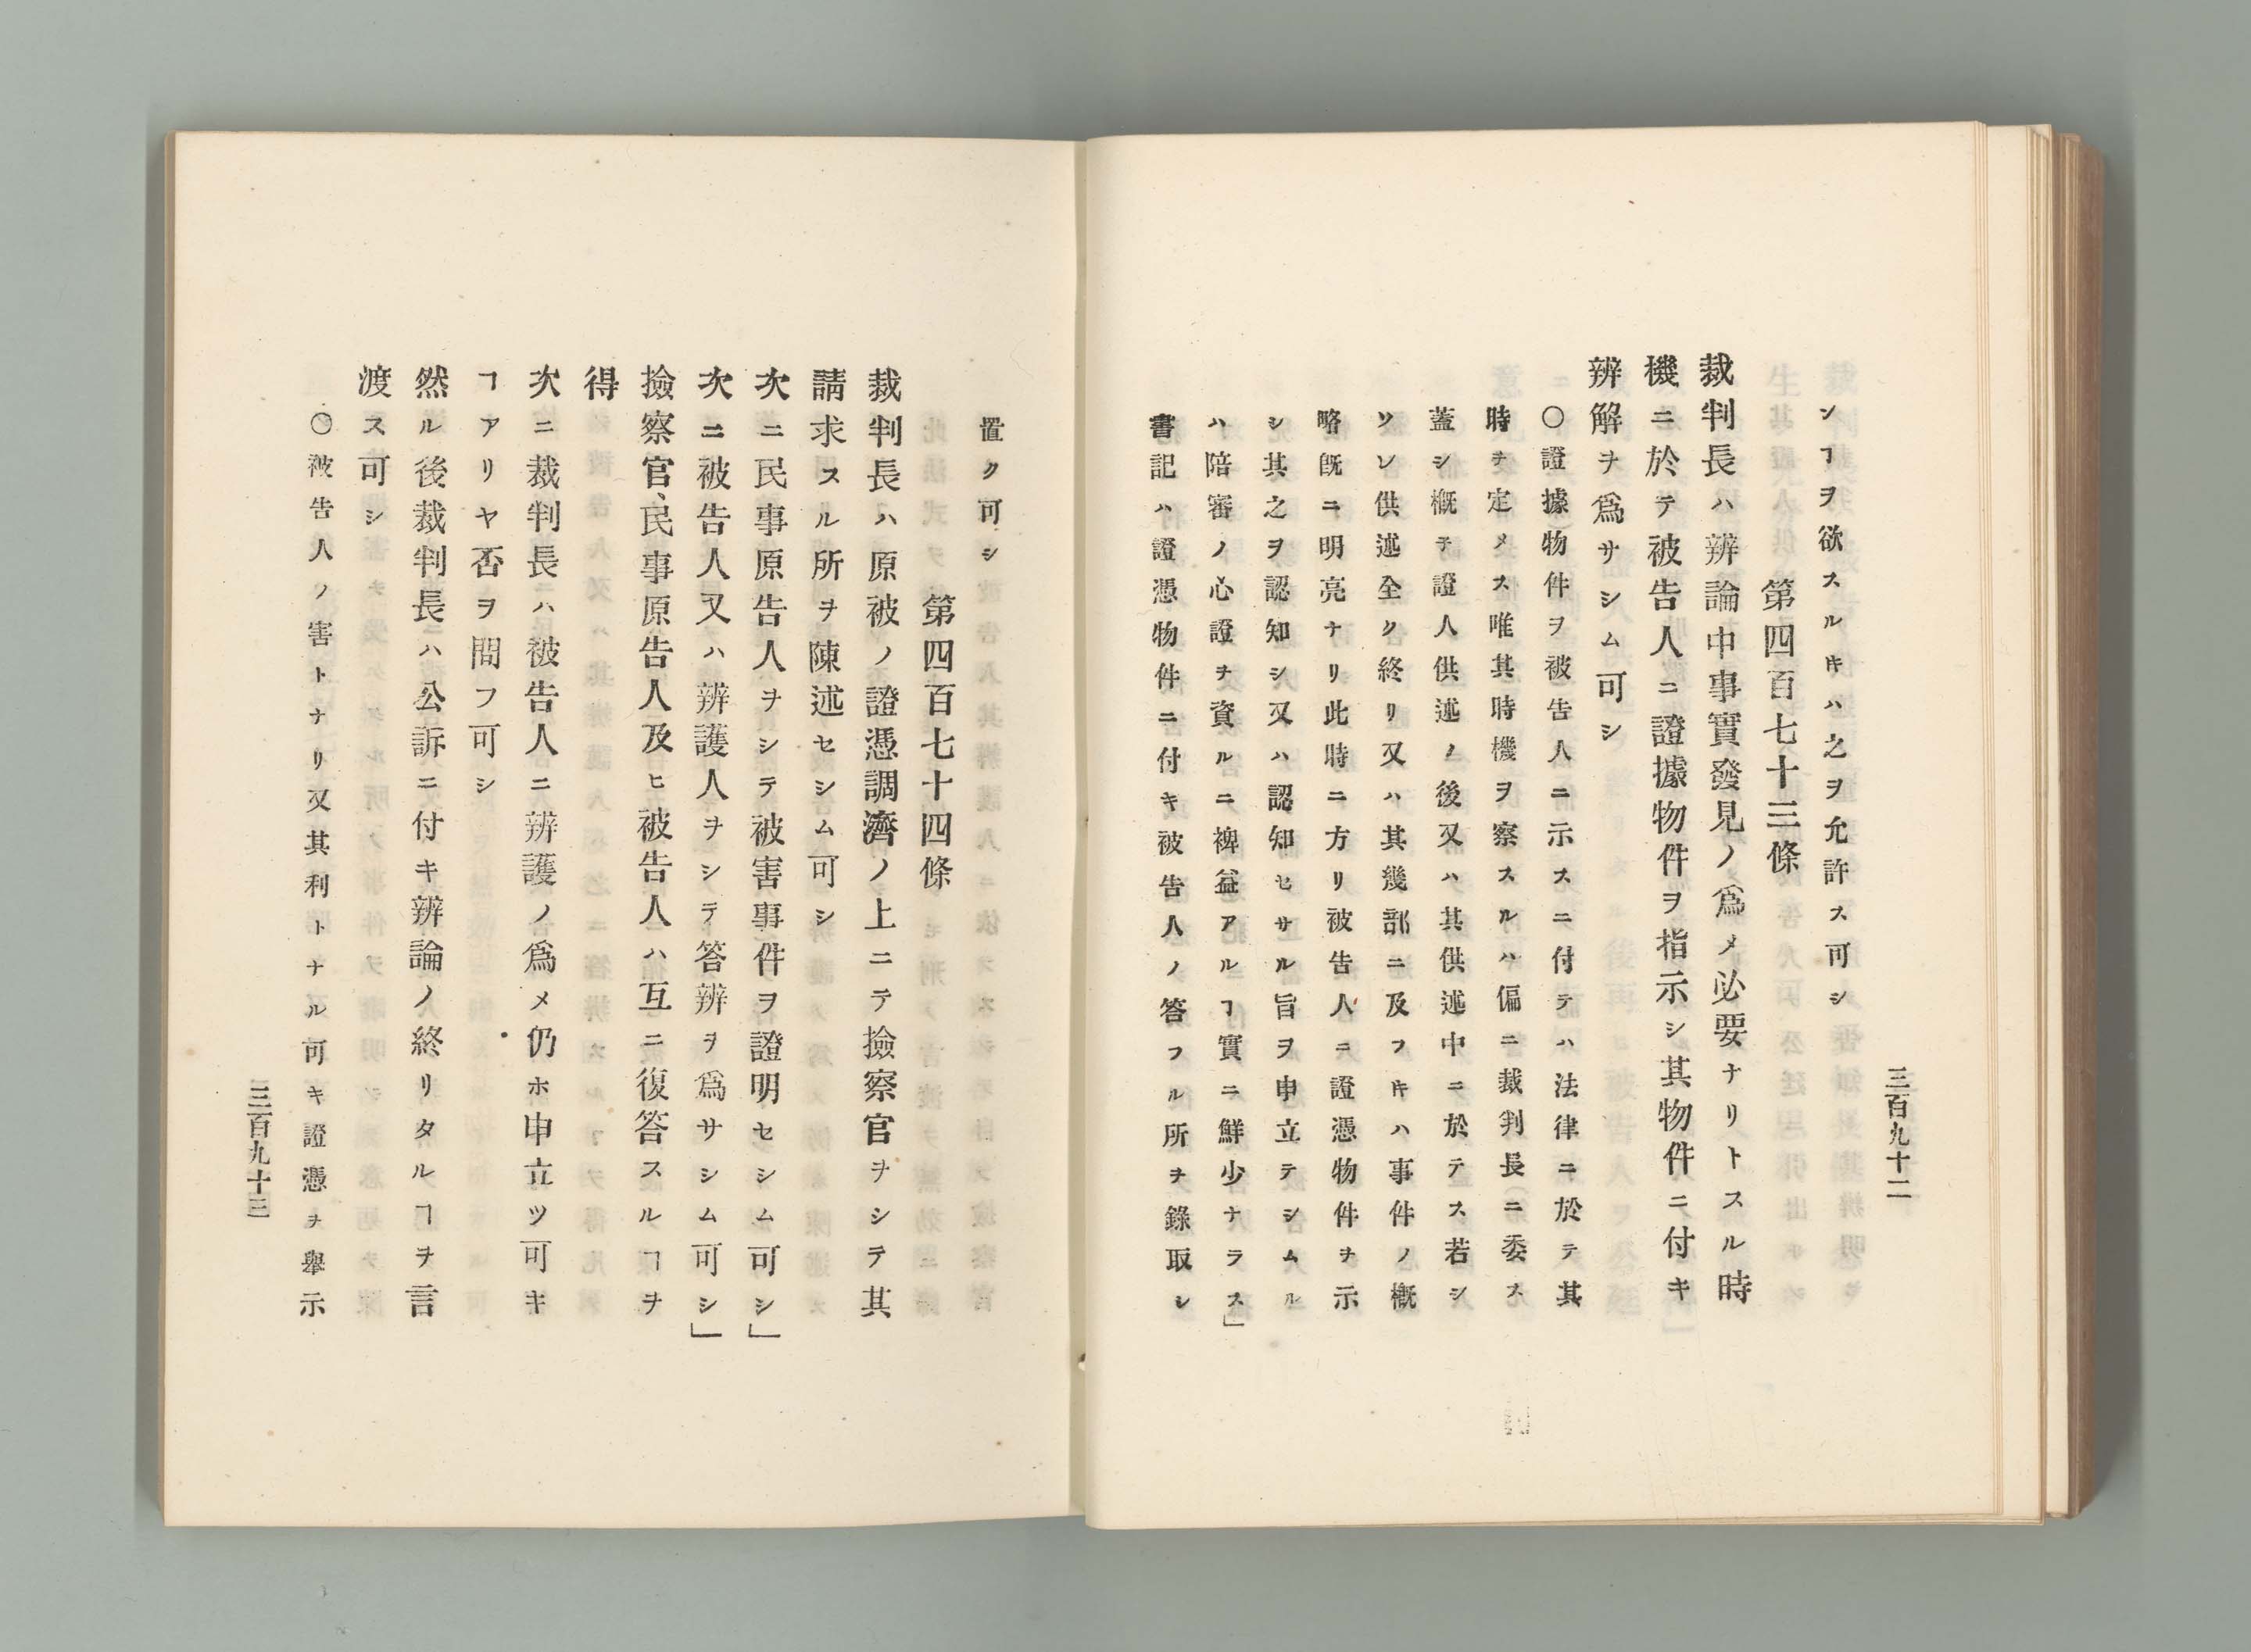 ンヿヲ欲スルキハ之ヲ允許ス可シ
第四百七十三條
裁判長ハ辨論中事實發見ノ爲メ必要ナリトスル時
機ニ於テ被告人ニ證據物件ヲ指示シ其物件ニ付キ
辨解ヲ爲サシム可シ
〇證據物件ヲ被告人ニ示スニ付テハ法律ニ於テ其
時ヲ定メス唯其時機ヲ察スルハ偏ニ裁判長ニ委ス
蓋シ概子證人供述ノ後又ハ其供述中ニ於テス若シ
ソレ供述全ク終リ又ハ其幾部ニ及フキハ事件ノ概
略既ニ明亮ナリ此時ニ方リ被告人ニ證憑物件ヲ示
シ其之ヲ認知シ又ハ認知セサル旨ヲ申立テシムル
ハ陪審ノ心證ヲ資ルニ裨益アルヿ實ニ鮮少ナラス」
書記ハ證憑物件ニ付キ被告人ノ答フル所ヲ錄取シ
三百九十二
置ク可シ
第四百七十四條
裁判長ハ原被ノ證憑調濟ノ上ニテ撿察官ヲシテ其
請求スル所ヲ陳述セシム可シ
次ニ民事原告人ヲシテ被害事件ヲ證明セシム可シ」
次ニ被告人又ハ辨護人ヲシテ答辨ヲ爲サシム可シ」
撿察官、民事原告人及ヒ被告人ハ互ニ復答スルヿヲ
得
次ニ裁判長ハ被告人ニ辨護ノ爲メ仍ホ申立ツ可キ
ヿアリヤ否ヲ問フ可シ
然ル後裁判長ハ公訴ニ付キ辨論ノ終リタルヿヲ言
渡ス可シ
〇被告人ノ害トナリ又其利トナル可キ證憑ヲ擧示
三百九十三